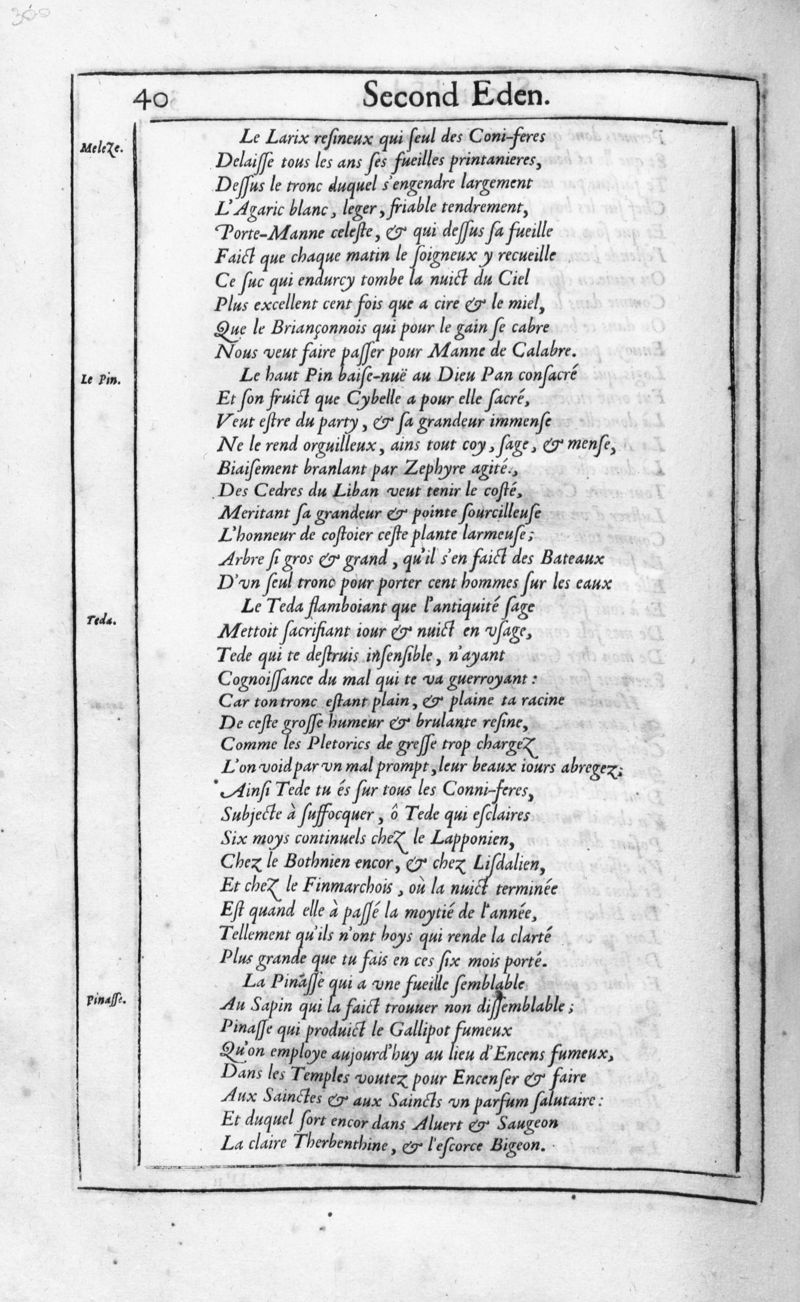 360
40 Second Eden.
Meleze.
Le Larix resineux qui seul des Coni-feres
Delaisse tous les ans ses fueilles printanieres,
Dessus le tronc duquel s'engendre largement
L'Agaric blanc, leger, friable tendrement,
Porte-Manne celeste, & qui dessus sa fueille
Faict que chaque matin le soigneux y recueille
Ce suc qui endurcy tombe la nuict du Ciel
Plus excellent cent fois que a cire & le miel,
Que le Briançonnois qui pour le gain se cabre
Nous veut faire passer pour Manne de Calabre.
Le Pin.
Le haut Pin baise-nuë au Dieu Pan consacré
Et son fruict que Cybelle a pour elle sacré,
Veut estre du party, & sa grandeur immense
Ne le rend orguilleux, ains tout coy, sage, & mense,
Biaisement branlant par Zephyre agité.,
Des Cedres du Liban veut tenir le costé,
Meritant sa grandeur & pointe sourcilleuse
L'honneur de costoier ceste plante larmeuse;
Arbre si gros & grand, qu'il s'en faict des Bateaux
D'vn seul tronc pour porter cent hommes sur les eaux
Teda.
Le Teda flamboiant que l'antiquité sage
Mettoit sacrifiant iour & nuict en vsage,
Tede qui te destruis insensible, n'ayant
Cognoissance du mal qui te va guerroyant:
Car ton tronc estant plain, & plaine ta racine
De ceste grosse humeur & brulante resine,
Comme les Pletorics de gresse trop chargez
L'on void par vn mal prompt, leur beaux iours abregez;
Ainsi Tede tu és sur tous les Conni-feres,
Subjecte à suffocquer, ô Tede qui esclaires
Six moys continuels chez le Lapponien,
Chez le Bothnien encor, & chez Lisdalien,
Et chez le Finmarchois, où la nuict terminée
Est quand elle à passé la moytié de l'année,
Tellement qu'ils n'ont boys qui rende la clarté
Plus grande que tu fais en ces six mois porté.
Pinasse.
La Pinasse qui a vne fueille semblable
Au Sapin qui la faict trouuer non dissemblable;
Pinasse qui produict le Gallipot fumeux
Qu'on employe aujourd'huy au lieu d'Encens fumeux,
Dans les Temples voutez pour Encenser & faire
Aux Sainctes & aux Saincts vn parfum salutaire:
Et duquel sort encor dans Aluert & Saugeon
La claire Therbenthine, & l'escorce Bigeon.